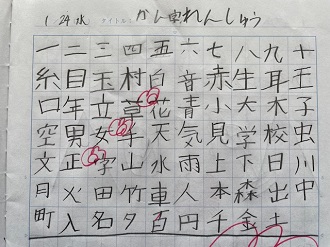 1/24 水 タイトル かん字れんしゅう
一二三四五六七八九十
糸目玉村白音赤生耳王
口年立草花青小大木子
空男女手天気見学校虫
文正字山水雨上下日川
月火田竹車人本森出中
町入名夕百円千金土